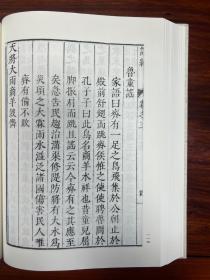 魯童謠
家語曰齊有一足之鳥飛集於公朝止於
殿前舒翅而跳齊侯怪之使使聘魯問於
孔子子曰此鳥名商羊水祥也昔童兒屈
脚振肩而跳且謠云云今齊有之其應至
矣急告民趨治溝渠修隄防將有大水爲
災頃之大霖雨水溢泛諸國傷害民人唯
齊有備不敗
天將大雨商羊鼓舞